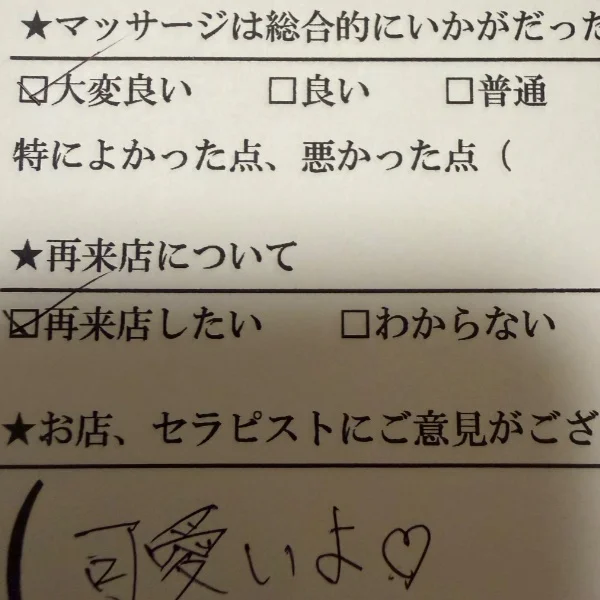 ★マッサージは総合的にいかがだった
☑大変良い □良い □普通
特によかった点、悪かった点（
★再来店について
☑再来店したい □わからない
★お店、セラピストにご意見がござ
（可愛いよ♡